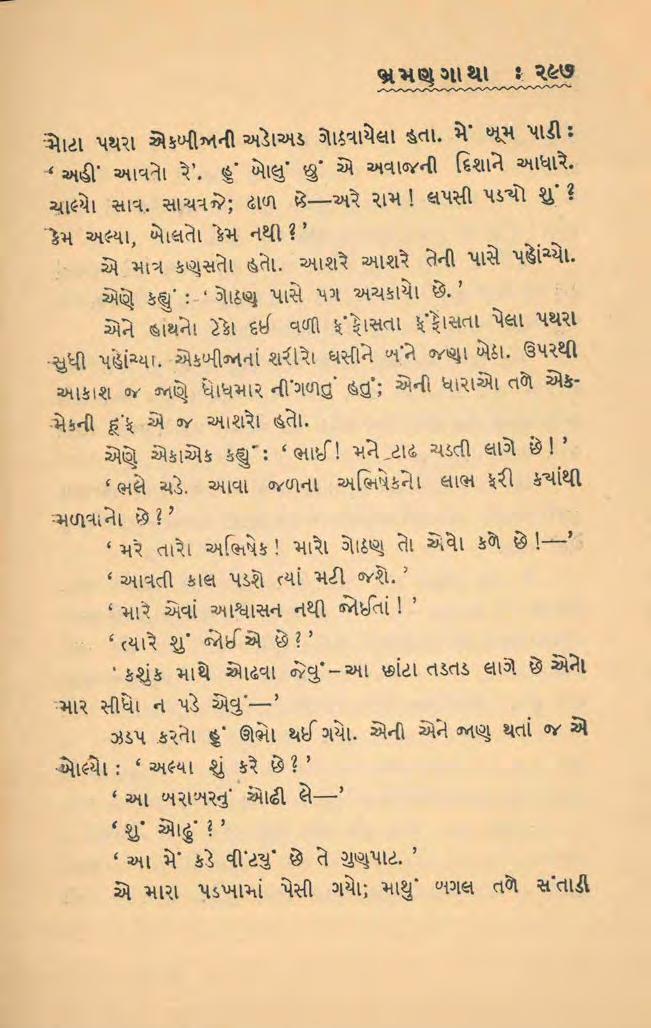 ભ્રમણગાથા : ૨૯૭
મોટા પથરા એકબીજાની અડોઅડ ગોઠવાયેલા હતા. મેં બૂમ પાડી :
‘ અહીં આવતો રે’. હું બોલું છું એ અવાજની દિશાને આધારે.
ચાલ્યો આવ. સાચવજે; ઢાળ છે—અરે રામ ! લપસી પડ્યો શું ?
કેમ અલ્યા, બોલતો કેમ નથી ? ’
એ માત્ર કણસતો હતો. આશરે આશરે તેની પાસે પહોંચ્યો.
એણે કહ્યું : - ‘ ગોઠણ પાસે પગ અચકાયો છે. ’
એને હાથનો ટેકો દઈ વળી ફંફોસતા ફંફોસતા પેલા પથરા
સુધી પહોંચ્યા. એકબીજાનાં શરીરો ઘસીને બંને જણા બેઠા. ઉપરથી
આકાશ જ જાણે ધોધમાર નીંગળતું હતું; એની ધારાઓ તળે એક-
મેકની હૂંફ એ જ આશરો હતો.
એણે એકાએક કહ્યું : ‘ ભાઈ ! મને ટાઢ ચડતી લાગે છે ! ’
‘ ભલે ચડે. આવા જળના અભિષેકનો લાભ ફરી ક્યાંથી
મળવાનો છે ? ’
‘ મરે તારો અભિષેક ! મારો ગોઠણ તો એવો કળે છે !—’
‘ આવતી કાલ પડશે ત્યાં મટી જશે. ’
‘ મારે એવાં આશ્વાસન નથી જોઈતાં ! ’
‘ ત્યારે શું જોઈએ છે ? ’
‘ કશુંક માથે ઓઢવા જેવું – આ છાંટા તડતડ લાગે છે એનો
માર સીધો ન પડે એવું—’
ઝડપ કરતો હું ઊભો થઈ ગયો. એની એને જાણ થતાં જ એ
બોલ્યો : ‘ અલ્યા શું કરે છે ? ’
‘ આ બરાબરનું ઓઢી લે—’
‘ શું ઓઢું ? ’
‘ આ મેં કડે વીંટ્યું છે તે ગુણપાટ. ’
એ મારા પડખામાં પેસી ગયો; માથું બગલ તળે સંતાડી